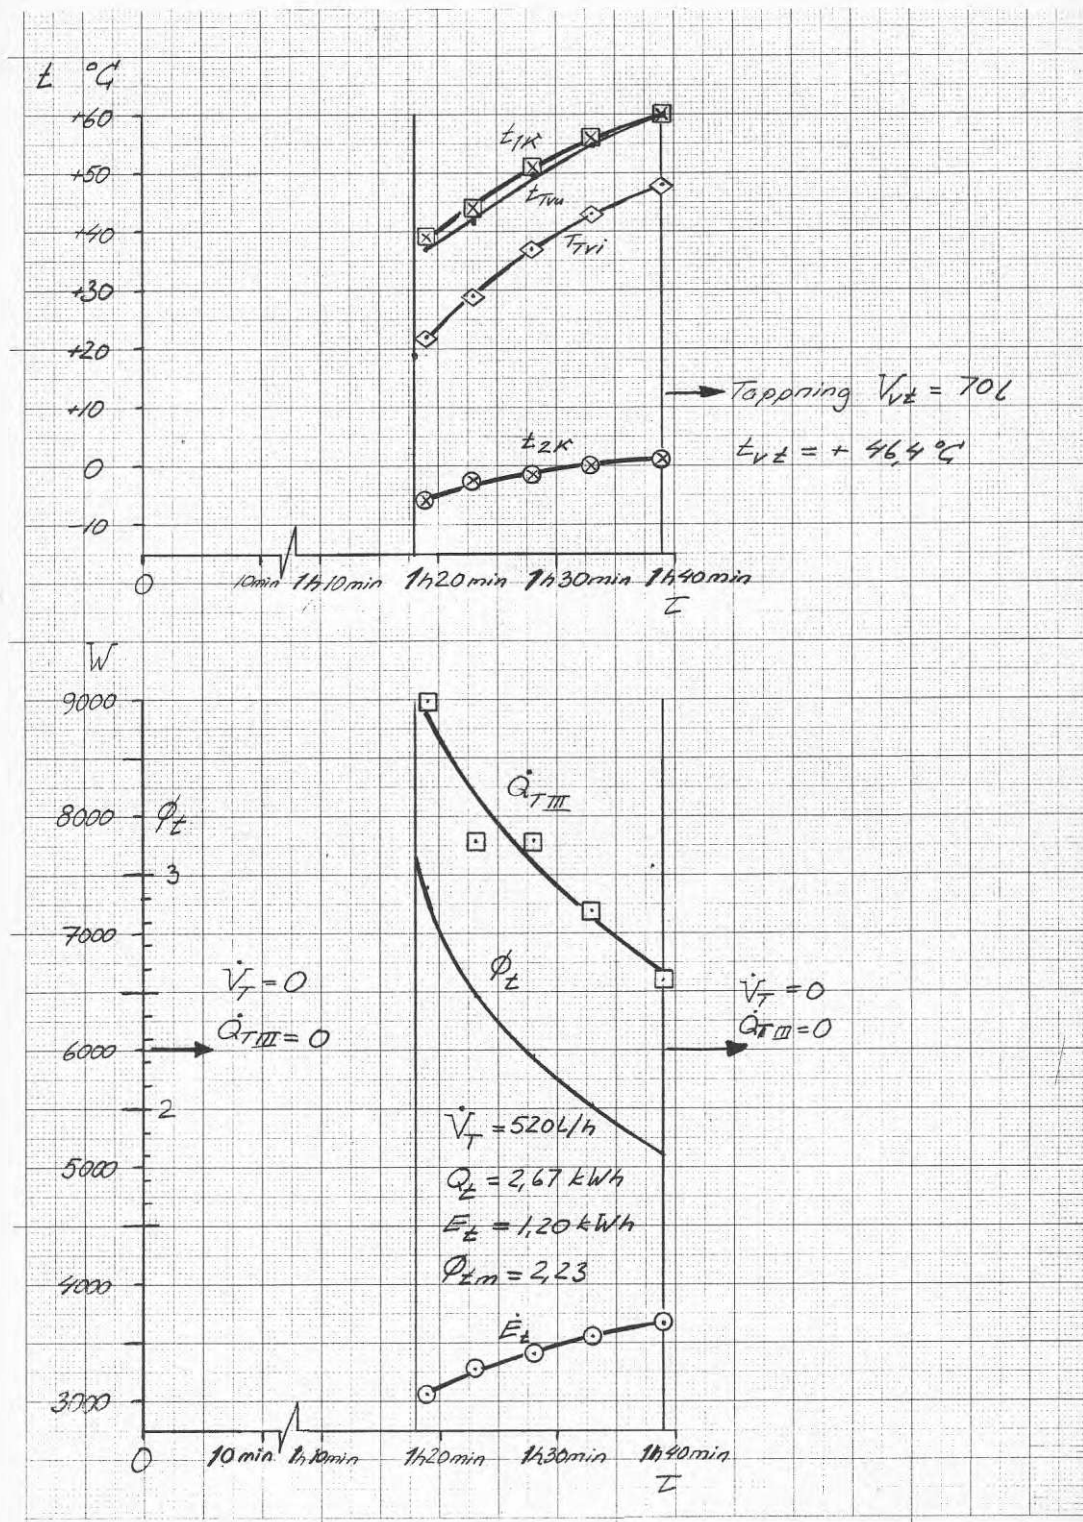 t °C
+60
+50
+40
+30
+20
+10
0
-10
t1K
tTvu
TTvi
t2K
Tappning Vvt = 70l
tvt = + 46,4 °C
0 10min 1h10min 1h20min 1h30min 1h40min
τ
W
9000
8000
7000
6000
5000
4000
3000
ϕt
3
2
Q̇TIII
ϕt
V̇T = 0
Q̇TIII = 0
V̇T = 0
Q̇TIII = 0
V̇T = 520l/h
Qt = 2,67 kWh
Et = 1,20 kWh
ϕtm = 2,23
Ėt
0 10min 1h10min 1h20min 1h30min 1h40min
τ